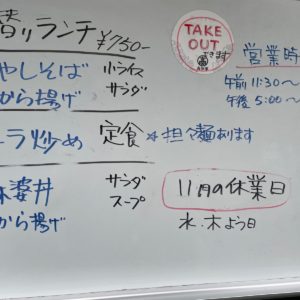 替りランチ ¥750-
やしそば 小ライス
から揚げ サラダ
ラ炒め 定食 ※担々麺あります
婆丼 サラダ
から揚げ スープ
TAKE
OUT
できます
営業時
午前11:30〜
午後5:00〜
11月の休業日
水・木よう日